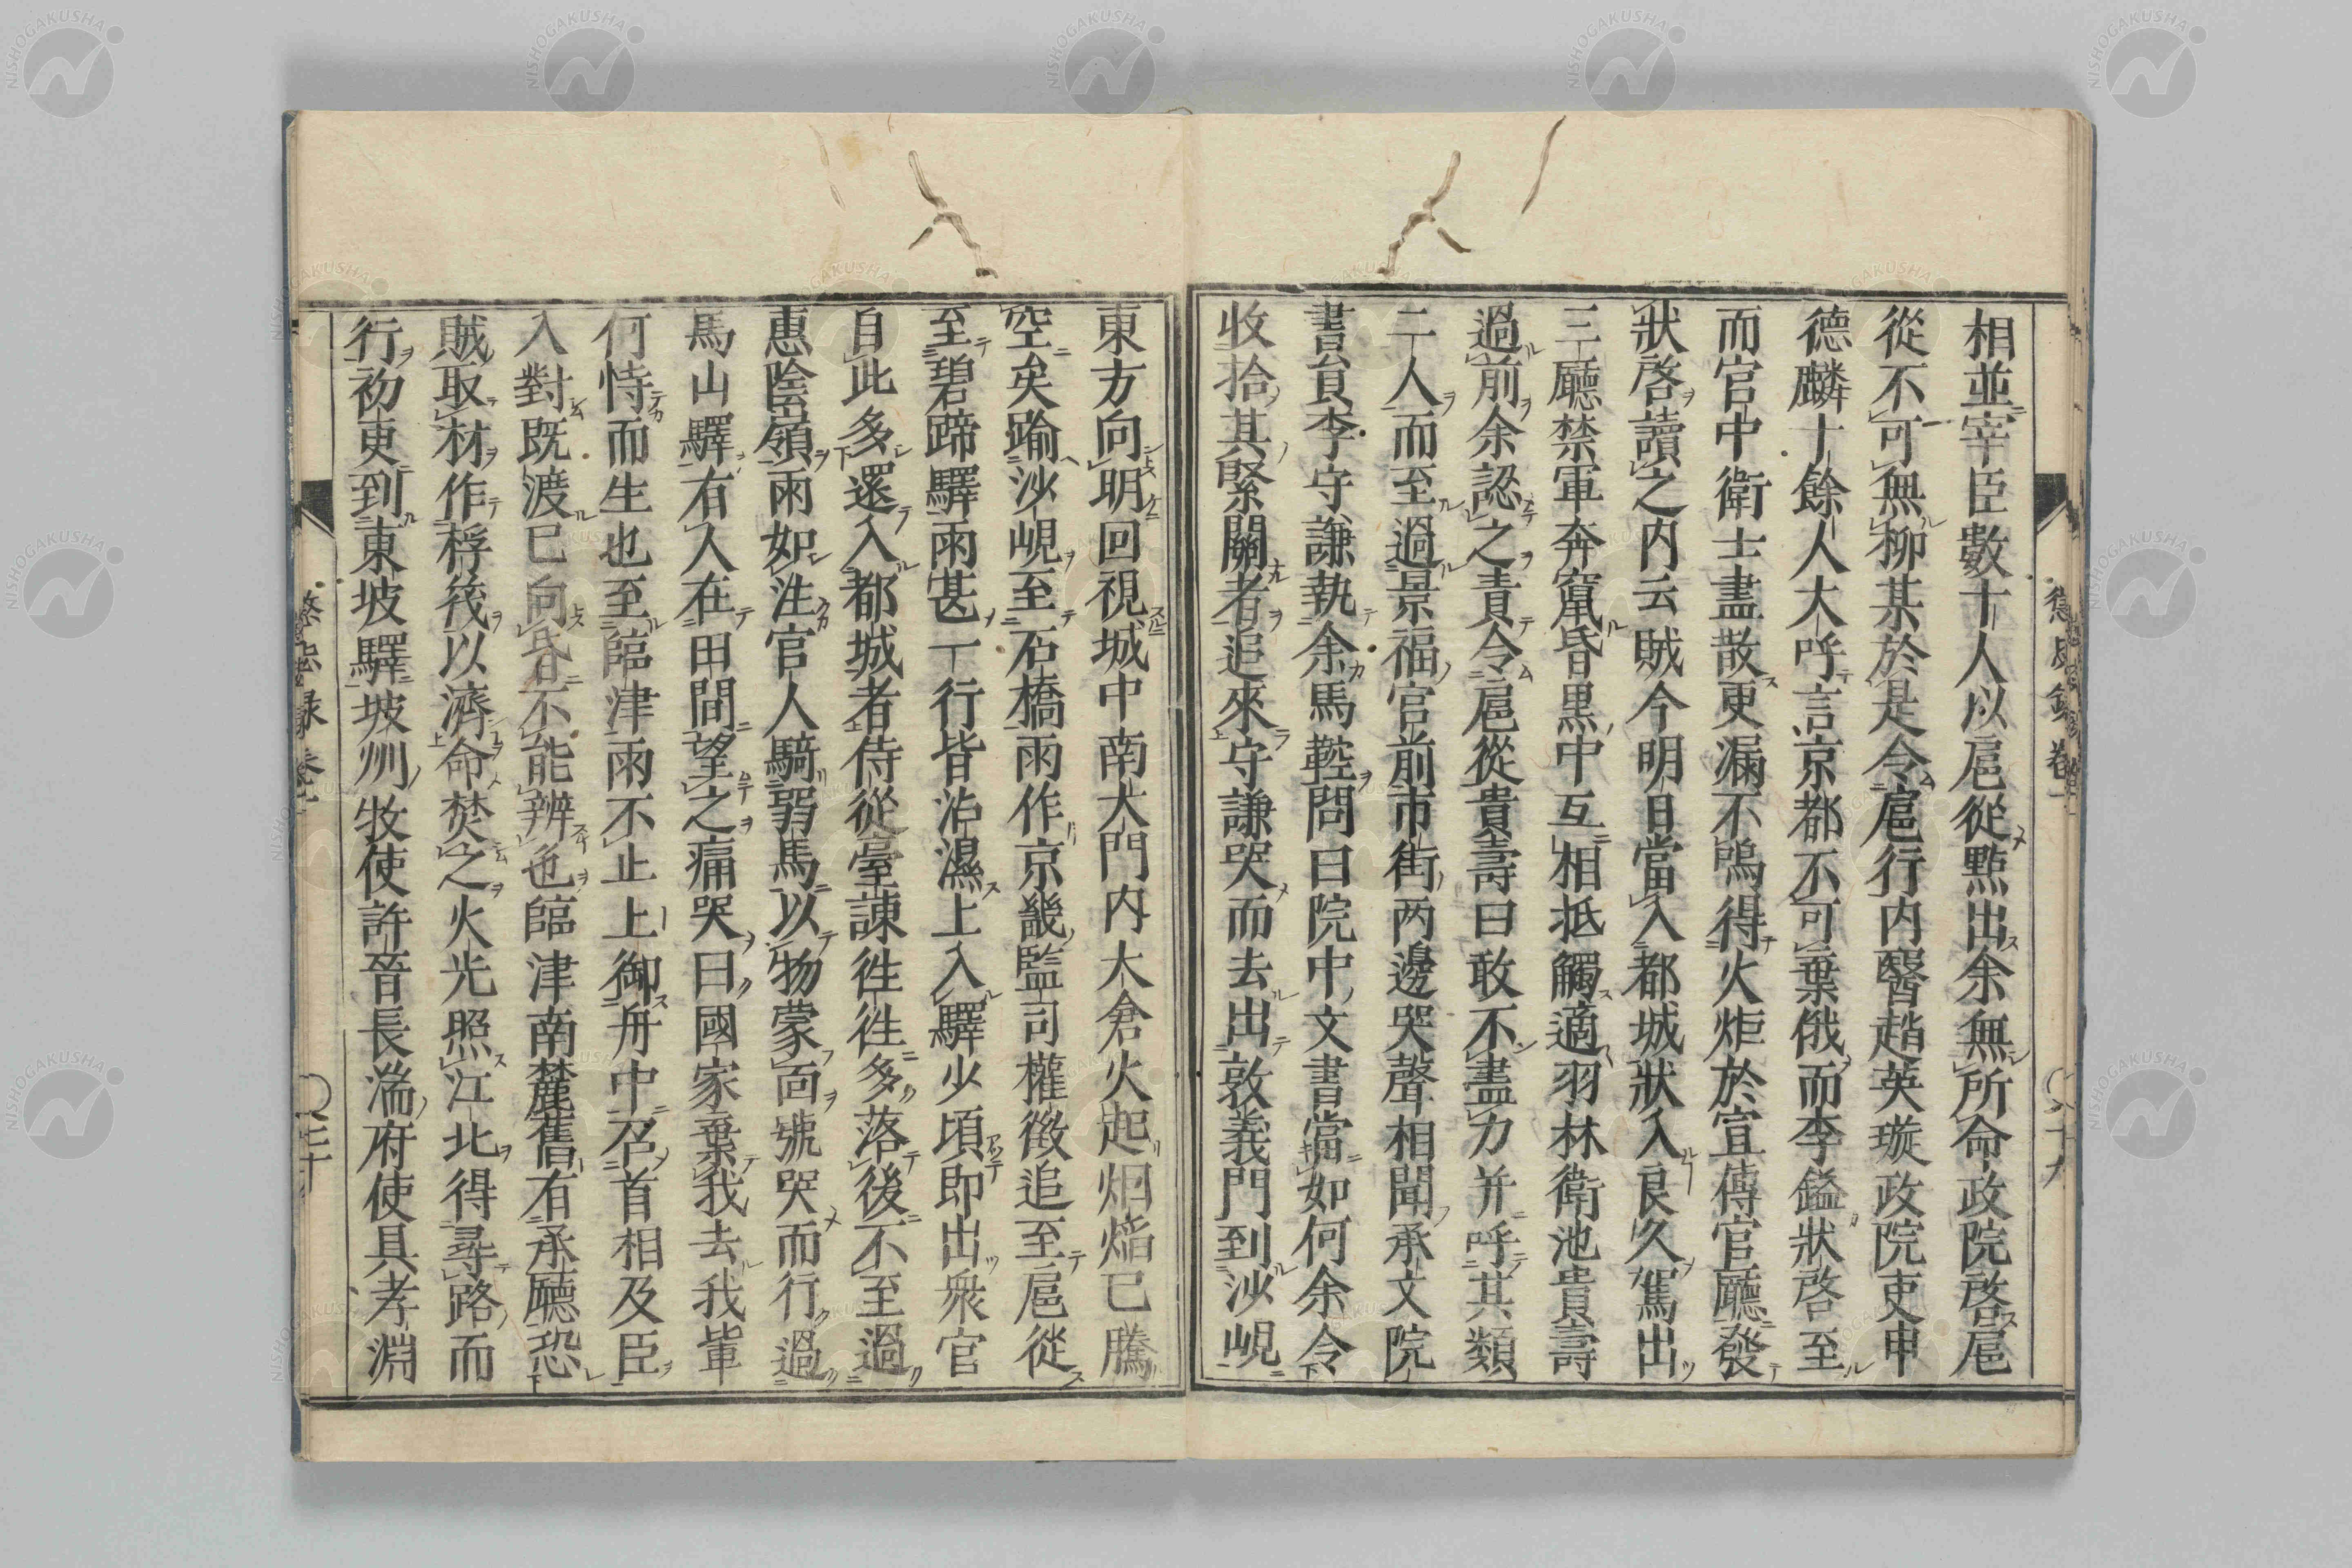 相並宰臣數十人以扈從點出余無所命政院啓扈
從不可無柳某於是令扈行内醫趙英璇政院吏申
德麟十餘人大呼言京都不可棄俄而李鎰狀啓至
而官中衛士盡散更漏不鳴得火炬於宣傳官廳發
狀啓讀之内云賊今明日當入都城狀入良久駕出
三廳禁軍奔竄昏黒中互相抵觸適羽林衛池貴壽
過前余認之責令扈從貴壽曰敢不盡力并呼其類
二人而至過景福官前市街两邊哭聲相聞承文院
書員李守謙執余馬鞚問曰院中文書當如何余令
收拾其緊關者追來守謙哭而去出敦義門到沙峴
東方向明回視城中南大門内大倉火起烟焔已騰
空矣踰沙峴至石橋雨作京畿監司權徵追至扈從
至碧蹄驛雨甚一行皆沾濕上入驛少頃即出衆官
自此多還入都城者侍從臺諫徃徃多落後不至過
惠陰嶺雨如注官人騎弱馬以物蒙面號哭而行過
馬山驛有人在田間望之痛哭曰國家棄我去我輩
何恃而生也至臨津雨不止上御舟中召首相及臣
入對既渡已向昏不能辨色臨津南麓舊有承廳恐
賊取材作桴筏以濟命焚之火光照江北得尋路而
行初更到東坡驛坡州牧使許晉長湍府使具孝淵
懲毖録 卷一
〇二十九
懲毖録 卷一
〇三十
NISHOGAKUSHA